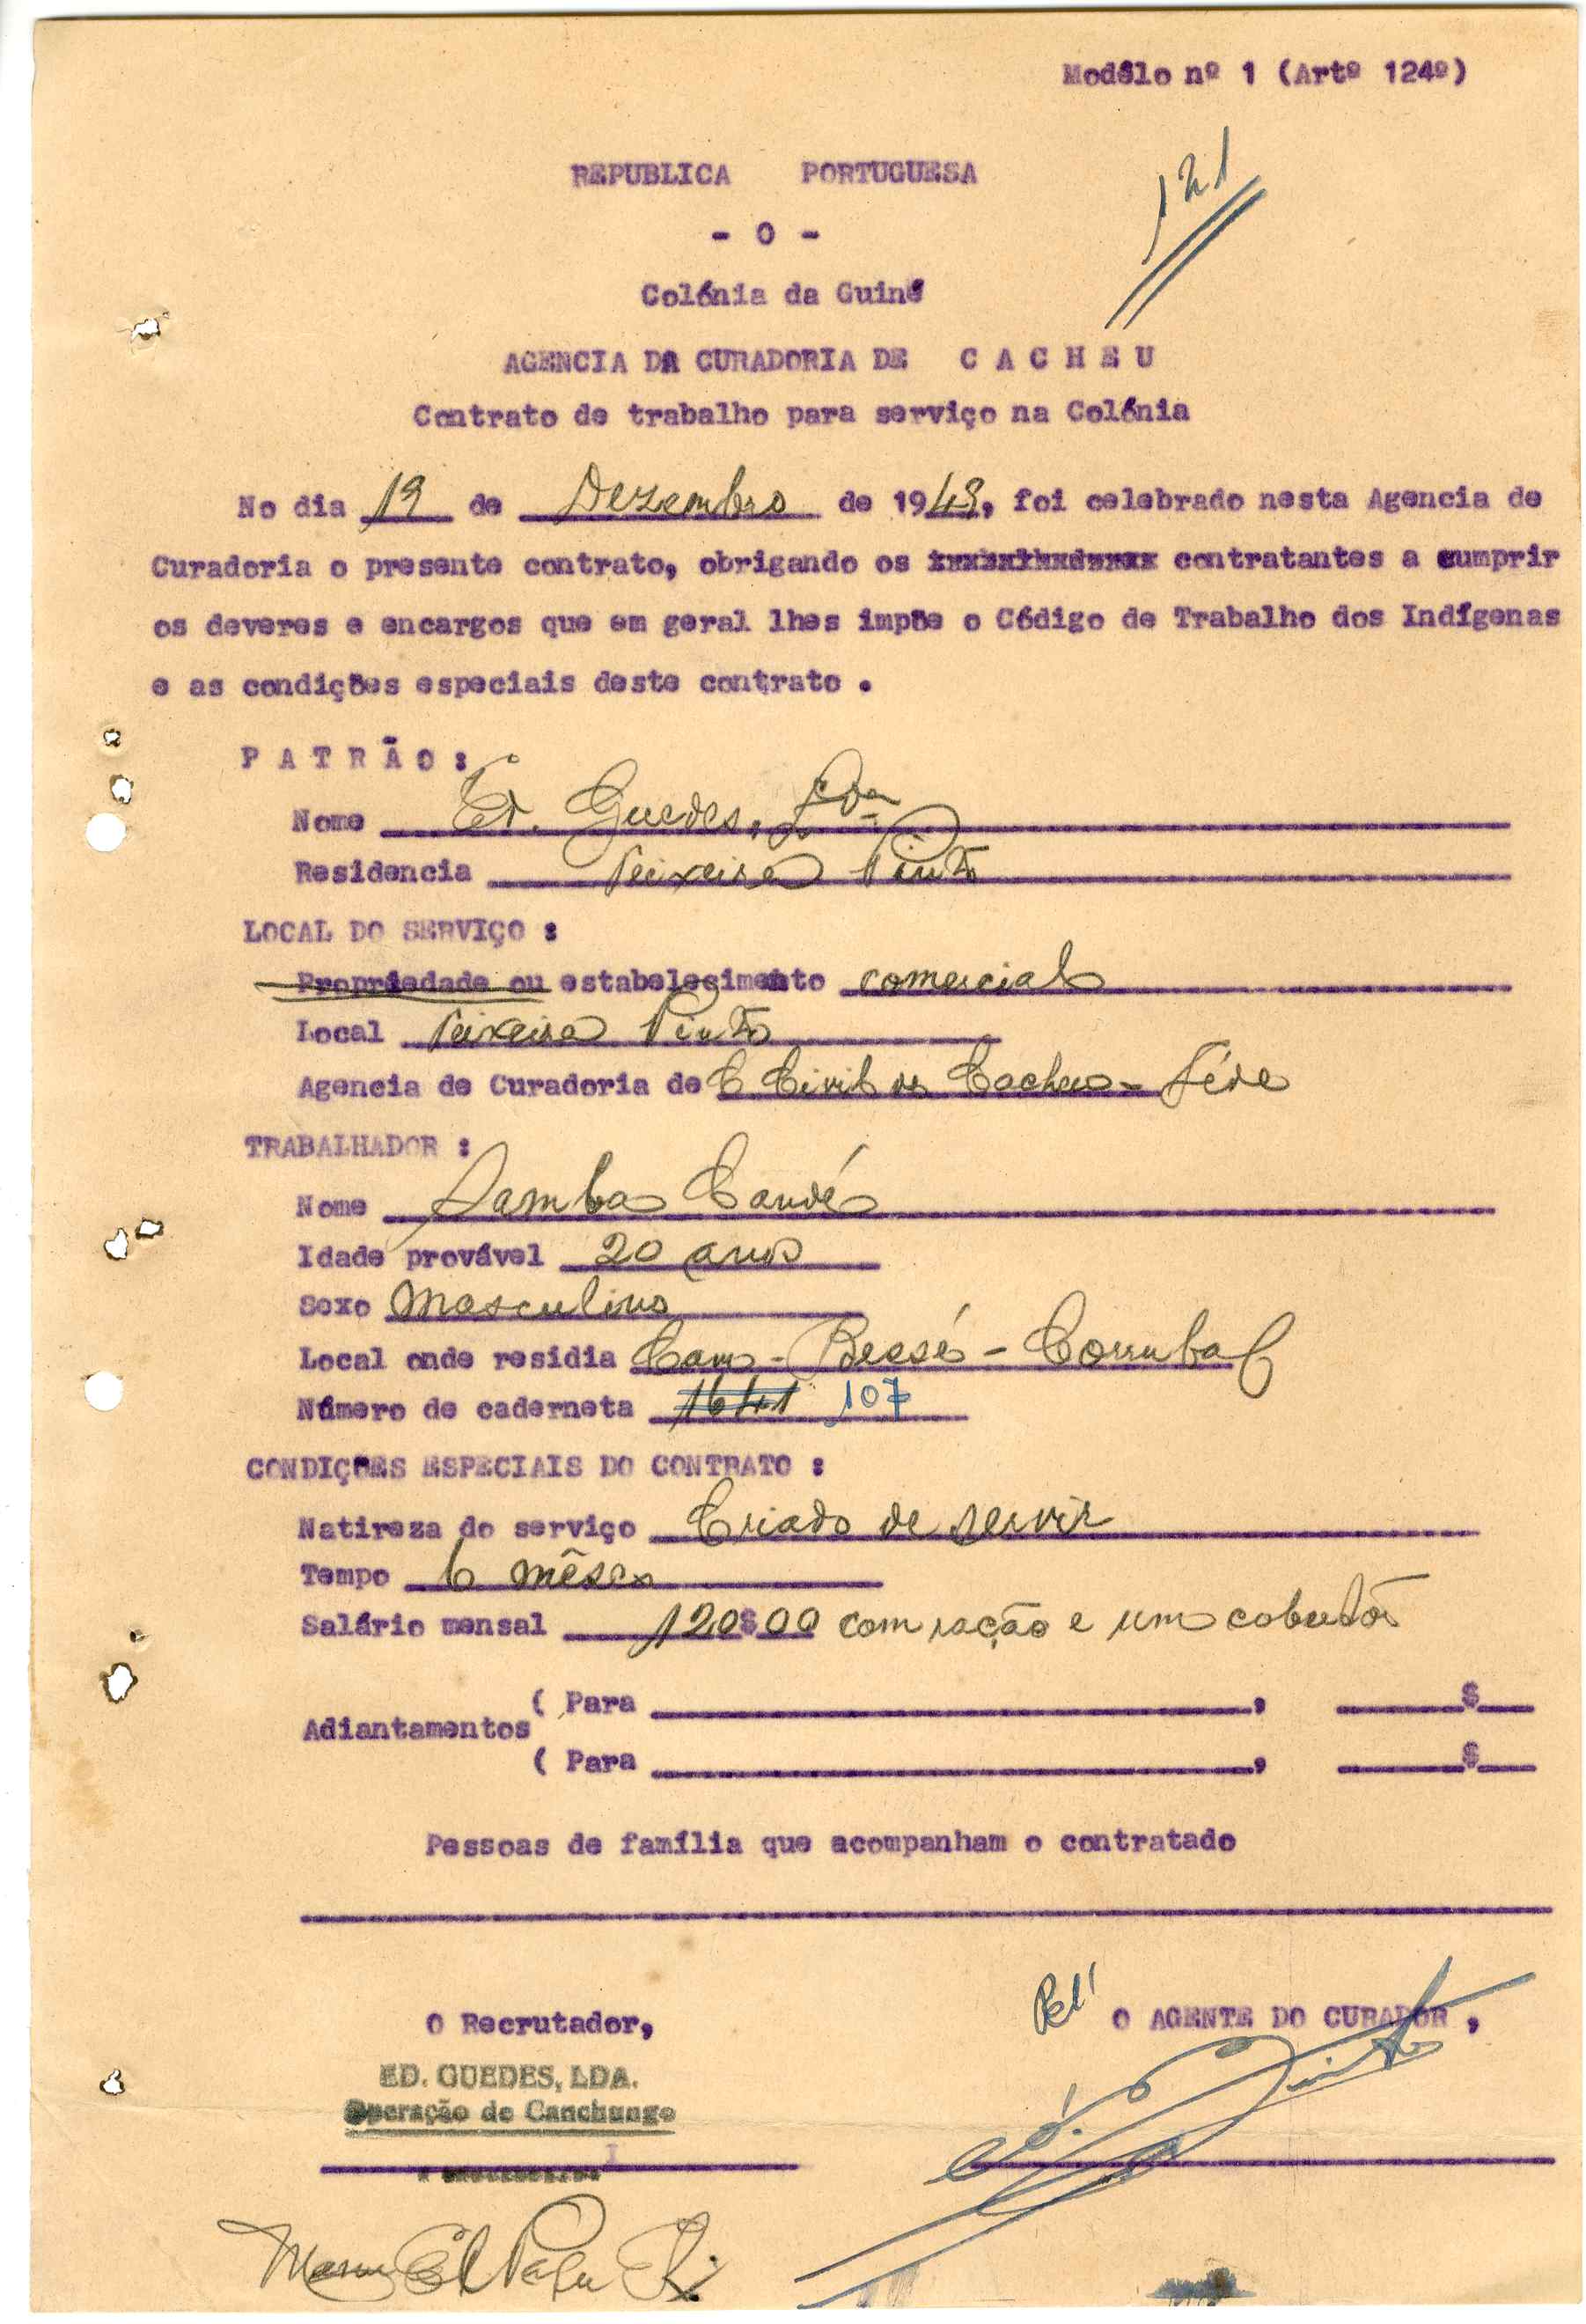 Modêlo nº 1 (Artº 124º)
121
REPUBLICA PORTUGUESA
- 0 -
Colónia da Guiné
AGENCIA DA CURADORIA DE C A C H E U
Contrato de trabalho para serviço na Colónia
No dia 19 de Dezembro de 1949, foi celebrado nesta Agencia de
Curadoria o presente contrato, obrigando os contratantes a cumprir
os deveres e encargos que em geral lhes impõe o Código de Trabalho dos Indígenas
e as condições especiais deste contrato .
P A T R Ã O :
Nome Ed. Guedes, Lda
Residencia Teixeira Pinto
LOCAL DO SERVIÇO :
Propriedade ou estabelecimento comercial
Local Teixeira Pinto
Agencia de Curadoria de C Civil de Cacheu - Séde
TRABALHADOR :
Nome Samba Candé
Idade provável 20 anos
Sexo Masculino
Local onde residia Cam - Bessé - Corubal
Número de caderneta 1641 107
CONDIÇÕES ESPECIAIS DO CONTRATO :
Natireza do serviço Criado de servir
Tempo 6 mêses
Salário mensal 120$00 com ração e um cobertor
( Para , $
Adiantamentos
( Para , $
Pessoas de família que acompanham o contratado
O Recrutador,
Pel' O AGENTE DO CURADOR ,
ED. GUEDES, LDA.
Operação de Canchungo